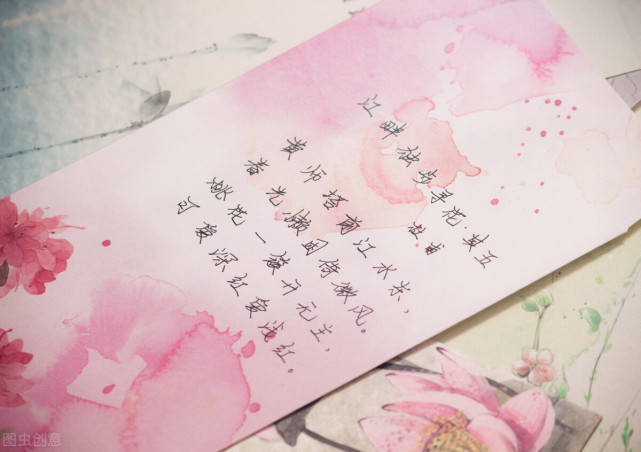 江畔独步寻花·其五
杜甫
黄师塔前江水东，
春光懒困倚微风。
桃花一簇开无主，
可爱深红爱浅红。
图虫创意